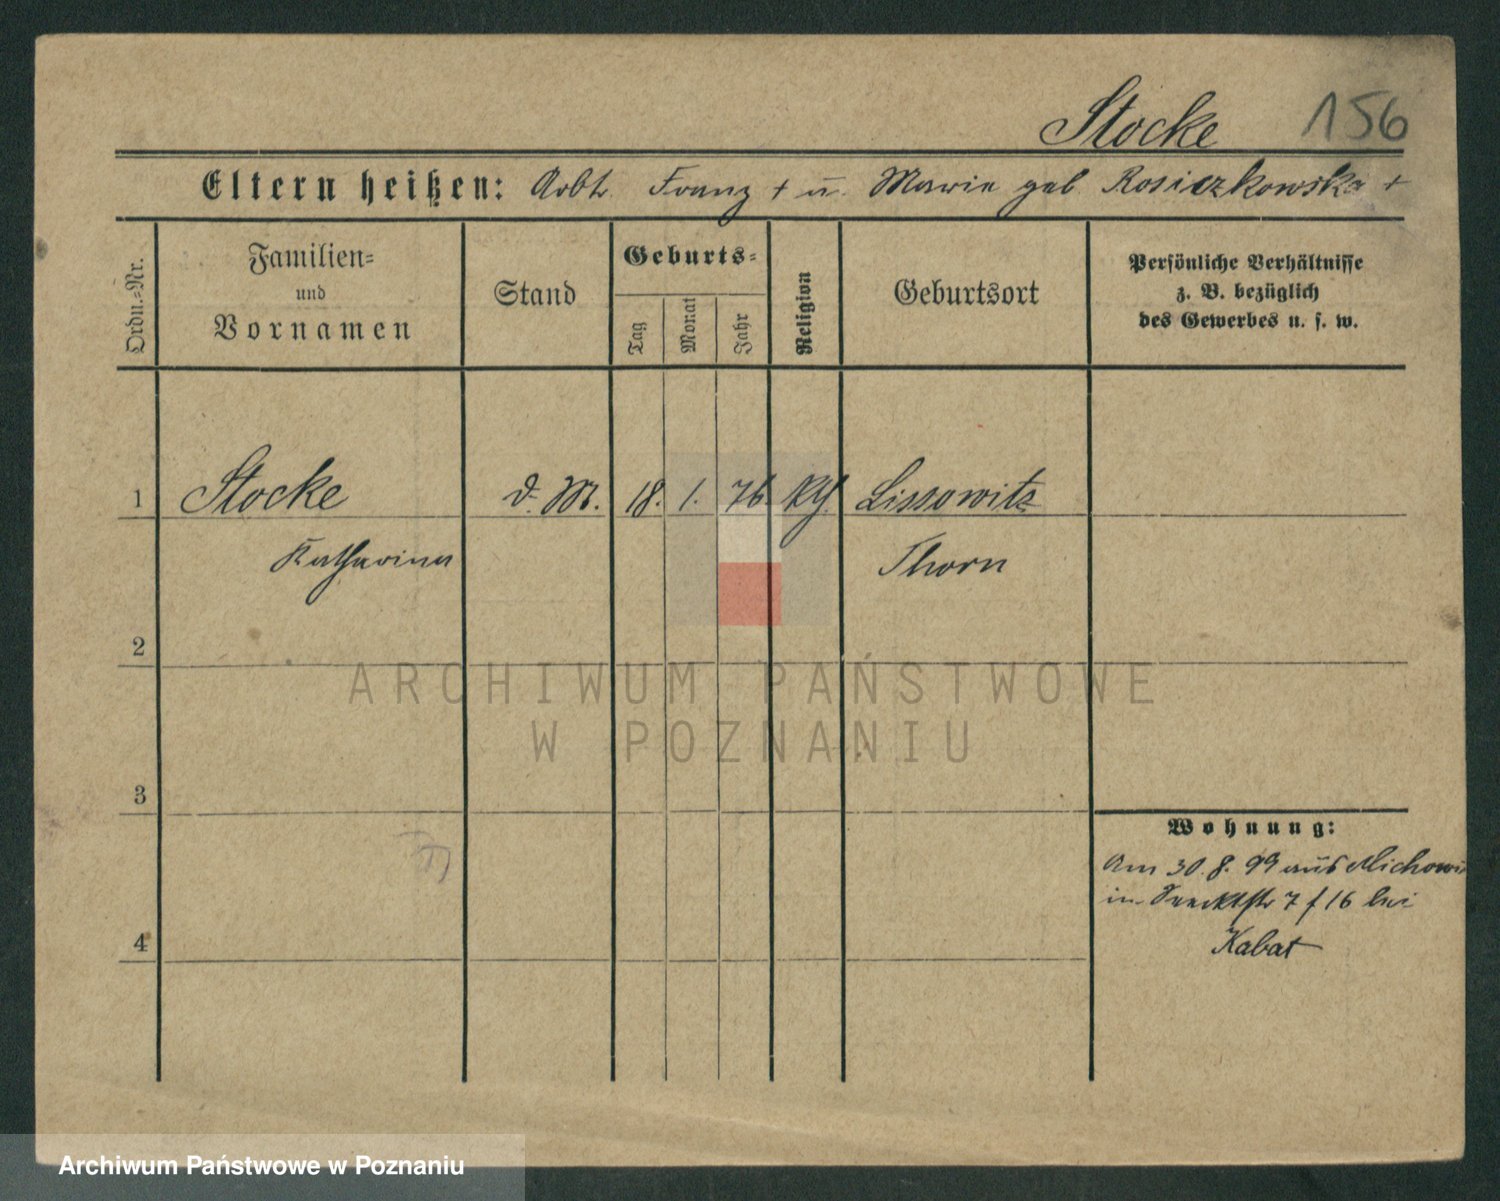 Stocke 156
Eltern heißen: Arbtr. Franz + u. Marie geb Rosiczkowska +
Ordn.-Nr.
Familien-
und
Vornamen
Stand
Geburts-
Tag
Monat
Jahr
Religion
Geburtsort
Persönliche Verhältnisse
z. B. bezüglich
des Gewerbes u. s. w.
1 Stocke d. M. 18. 1. 76. kth. Lissowitz
Katharina Thorn
2
ARCHIWUM PAŃSTWOWE
W POZNANIU
3
Wohnung:
Am 30. 8. 99 aus
in 7 f 16 bei
4 Kabat
Archiwum Państwowe w Poznaniu